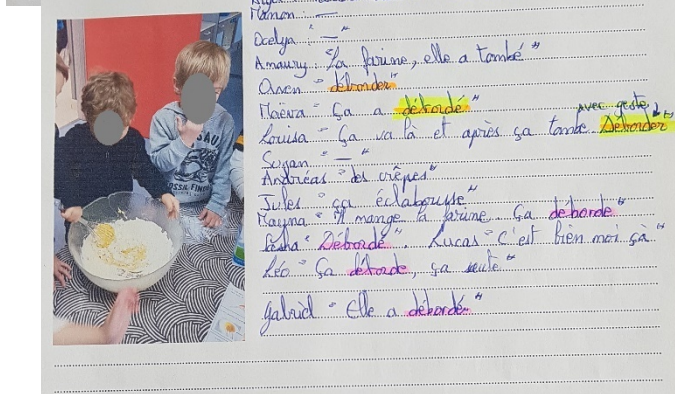 Manon : —
Ocelya : " — "
Amaury : "La farine, elle a tombé"
Owen " déborder"
Maëva " Ça a débordé"
avec geste
Louisa " Ça va là et après ça tombe. Déborder"
Suzan " — "
Andréas " des crêpes"
Jules " ça éclabousse"
" Il mange la farine. Ça déborde"
Sasha " Déborde". Lucas " c'est bien moi çà"
Léo " Ça déborde, ça saute"
Gabriel " Elle a débordé"